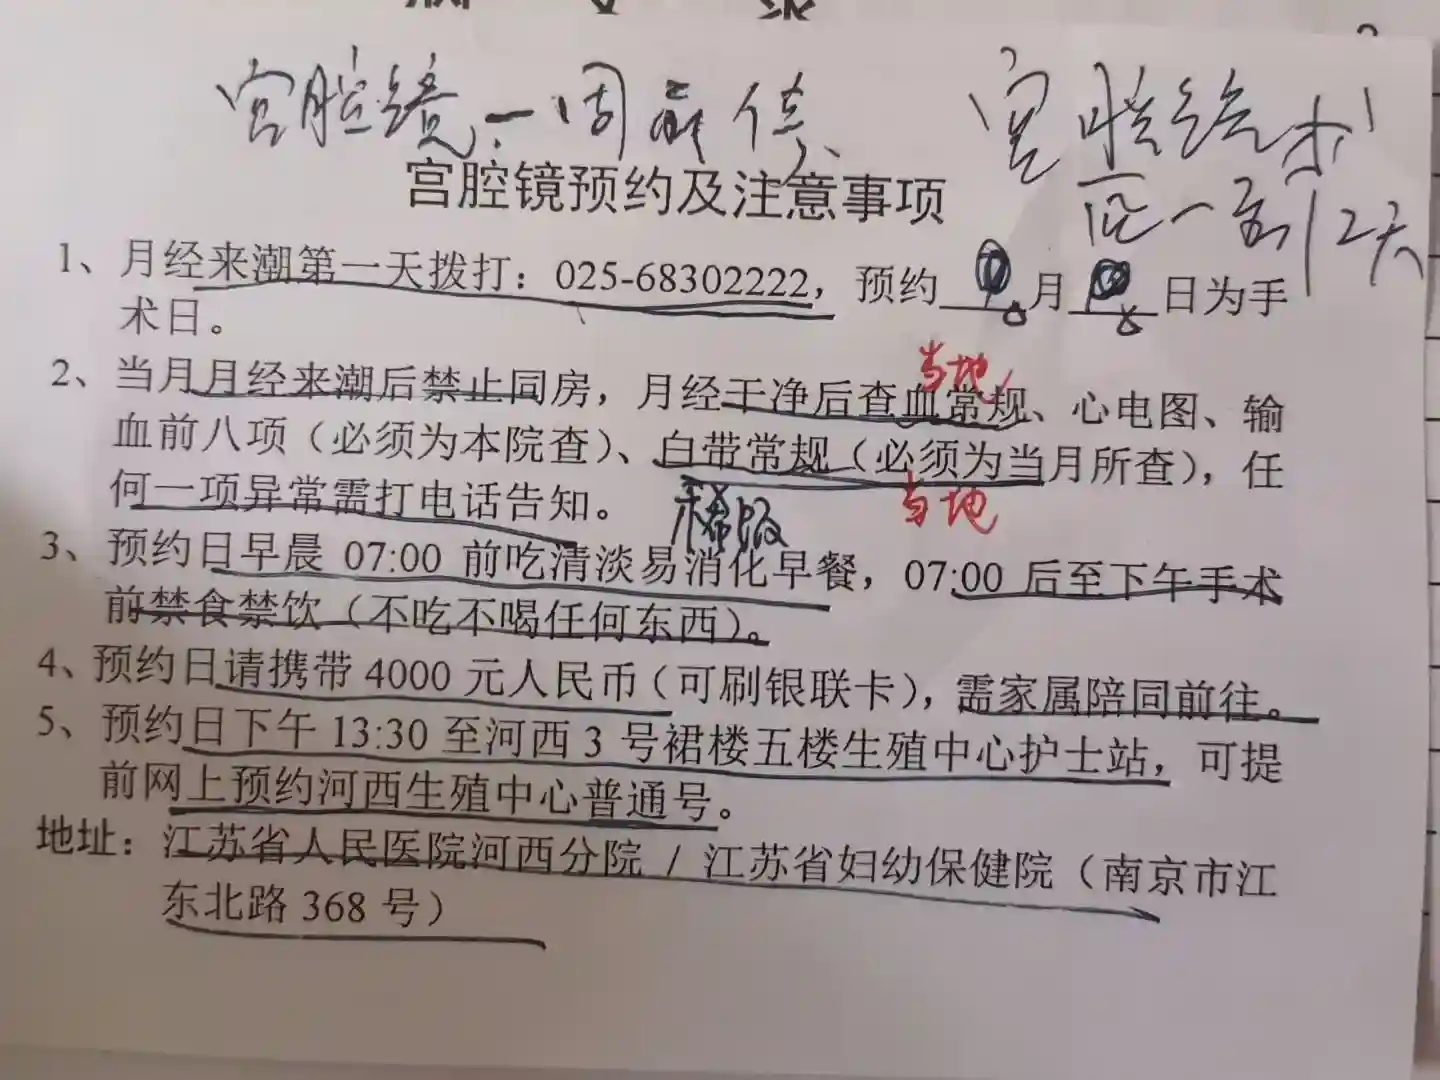 宫腔镜、一周前
宫腔镜术
后一到12天
宫腔镜预约及注意事项
1、月经来潮第一天拨打：025-68302222，预约 月 日为手
术日。
当地
2、当月月经来潮后禁止同房，月经干净后查血常规、心电图、输
血前八项（必须为本院查）、白带常规（必须为当月所查），任
何一项异常需打电话告知。
当地
稀饭
3、预约日早晨 07:00 前吃清淡易消化早餐，07:00 后至下午手术
前禁食禁饮（不吃不喝任何东西）。
4、预约日请携带 4000 元人民币（可刷银联卡），需家属陪同前往。
5、预约日下午 13:30 至河西 3 号裙楼五楼生殖中心护士站，可提
前网上预约河西生殖中心普通号。
地址：江苏省人民医院河西分院 / 江苏省妇幼保健院（南京市江
东北路 368 号）